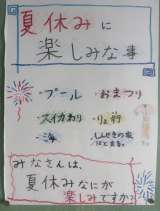 夏休みに
楽しみな事
・プール ・おまつり
・スイカわり ・りょ行
・海 ・しんせきの家
はとまる。
みなさんは、
夏休みなにが
楽しみですか?